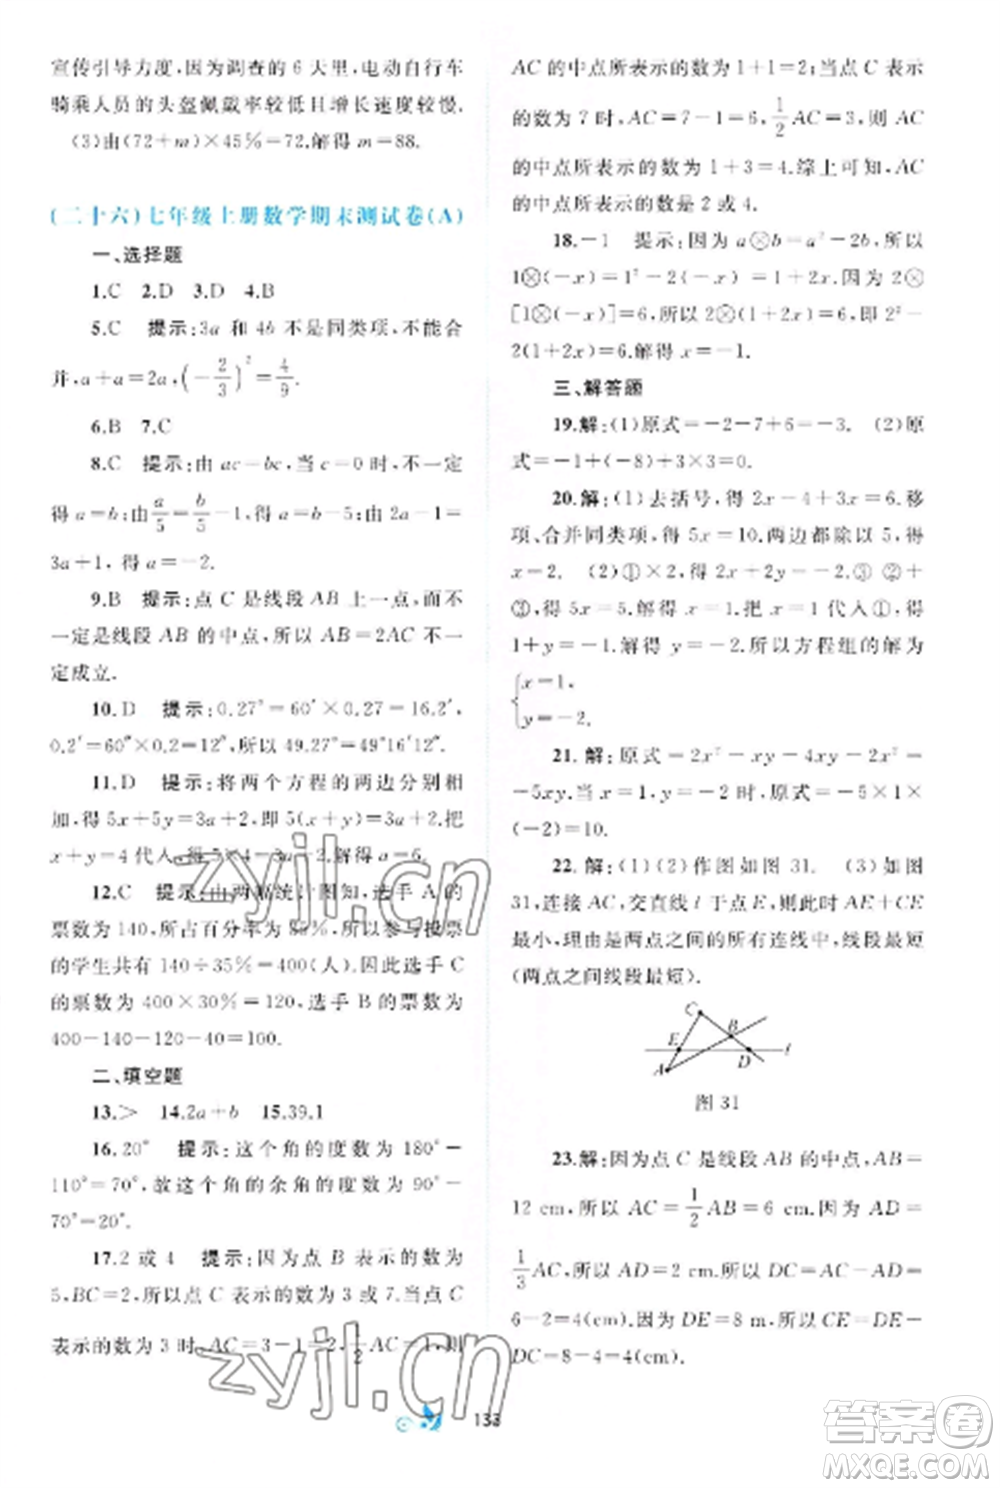 宣传引导力度,因为调查的 6 天里,电动自行车
骑乘人员的头盔佩戴率较低且增长速度较慢.
(3)由(72+m)×45%=72.解得 m=88.
(二十六)七年级上册数学期末测试卷(A)
一、选择题
1.C 2.D 3.D 4.B
5.C 提示:3a 和 4b 不是同类项,不能合
并,a+a=2a,(-2/3)²=4/9.
6.B 7.C
8.C 提示:由 ac=bc,当 c=0 时,不一定
得 a=b;由a/5=b/5-1,得 a=b-5;由 2a-1=
3a+1,得 a=-2.
9.B 提示:点 C 是线段 AB 上一点,而不
一定是线段 AB 的中点,所以 AB=2AC 不一
定成立.
10.D 提示:0.27°=60′×0.27=16.2′,
0.2′=60″×0.2=12″,所以 49.27°=49°16′12″.
11.D 提示:将两个方程的两边分别相
加,得 5x+5y=3a+2,即 5(x+y)=3a+2.把
x+y=4 代入,得 5×4=3a+2.解得 a=6.
12.C 提示:由两幅统计图知,选手 A 的
票数为 140,所占百分率为 35%,所以参与投票
的学生共有 140÷35%=400(人).因此选手 C
的票数为 400×30%=120,选手 B 的票数为
400-140-120-40=100.
二、填空题
13.> 14.2a+b 15.39.1
16.20° 提示:这个角的度数为 180°-
110°=70°.故这个角的余角的度数为 90°-
70°=20°.
17.2 或 4 提示:因为点 B 表示的数为
5,BC=2,所以点 C 表示的数为 3 或 7.当点 C
表示的数为 3 时,AC=3-1=2,1/2AC=1,则
AC 的中点所表示的数为 1+1=2;当点 C 表示
的数为 7 时,AC=7-1=6,1/2AC=3,则 AC
的中点所表示的数为 1+3=4.综上可知,AC
的中点所表示的数是 2 或 4.
18.-1 提示:因为 a⊗b=a²-2b,所以
1⊗(-x)=1²-2×(-x)=1+2x.所以 2⊗
[1⊗(-x)]=6,所以 2⊗(1+2x)=6,即 2²-
2(1+2x)=6.解得 x=-1.
三、解答题
19.解:(1)原式=-2-7+6=-3. (2)原
式=-1+(-8)+3×3=0.
20.解:(1)去括号,得 2x-4+3x=6.移
项、合并同类项,得 5x=10.两边都除以 5,得
x=2. (2)①×2,得 2x+2y=-2.③ ②+
③,得 5x=5.解得 x=1.把 x=1 代入①,得
1+y=-1.解得 y=-2.所以方程组的解为
{x=1,
y=-2.
21.解:原式=2x²-xy-4xy-2x²=
-5xy.当 x=1,y=-2 时,原式=-5×1×
(-2)=10.
22.解:(1)(2)作图如图 31. (3)如图
31,连接 AC,交直线 l 于点 E,则此时 AE+CE
最小,理由是两点之间的所有连线中,线段最短
(两点之间线段最短).
C
E B
A D l
图 31
23.解:因为点 C 是线段 AB 的中点,AB=
12 cm,所以 AC=1/2AB=6 cm.因为 AD=
1/3AC,所以 AD=2 cm.所以 DC=AC-AD=
6-2=4(cm).因为 DE=8 m,所以 CE=DE-
DC=8-4=4(cm).
133
zyjl.cn
zyjl.cn
答案圈
MXQE.COM